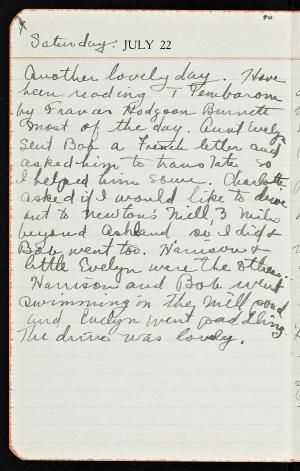 Saturday. JULY 22
Another lovely day. Have
been reading T Tembarom
by Frances Hodgson Burnett
most of the day. Aunt Evelyn
sent Bob a French letter and
asked him to translate so
I helped him some. Charlotte
asked if I would like to drive
out to Newton's Mill, 3 miles
beyond Ashland so I did &
Bob went too. Harrison &
little Evelyn were the others.
Harrison and Bob went
swimming in the mill pond
and Evelyn went paddling.
The drive was lovely.